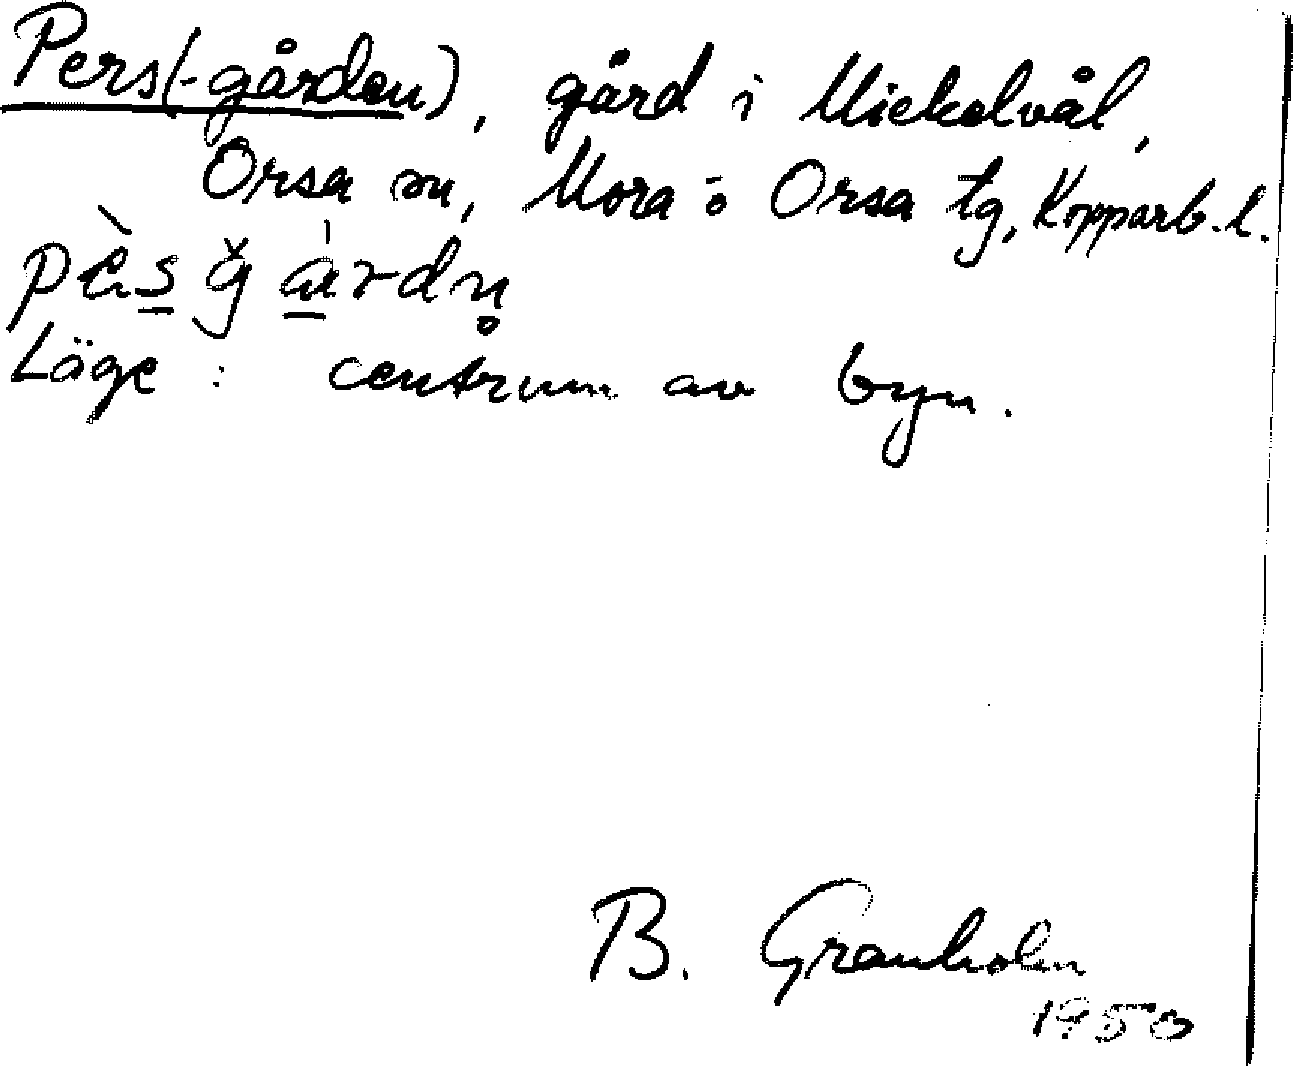 Pers(-gården), gård i Mickelvål,
Orsa sn, Mora o Orsa tg, Kopparb. l.
Läge : centrum av byn.
B. Granholm
1950